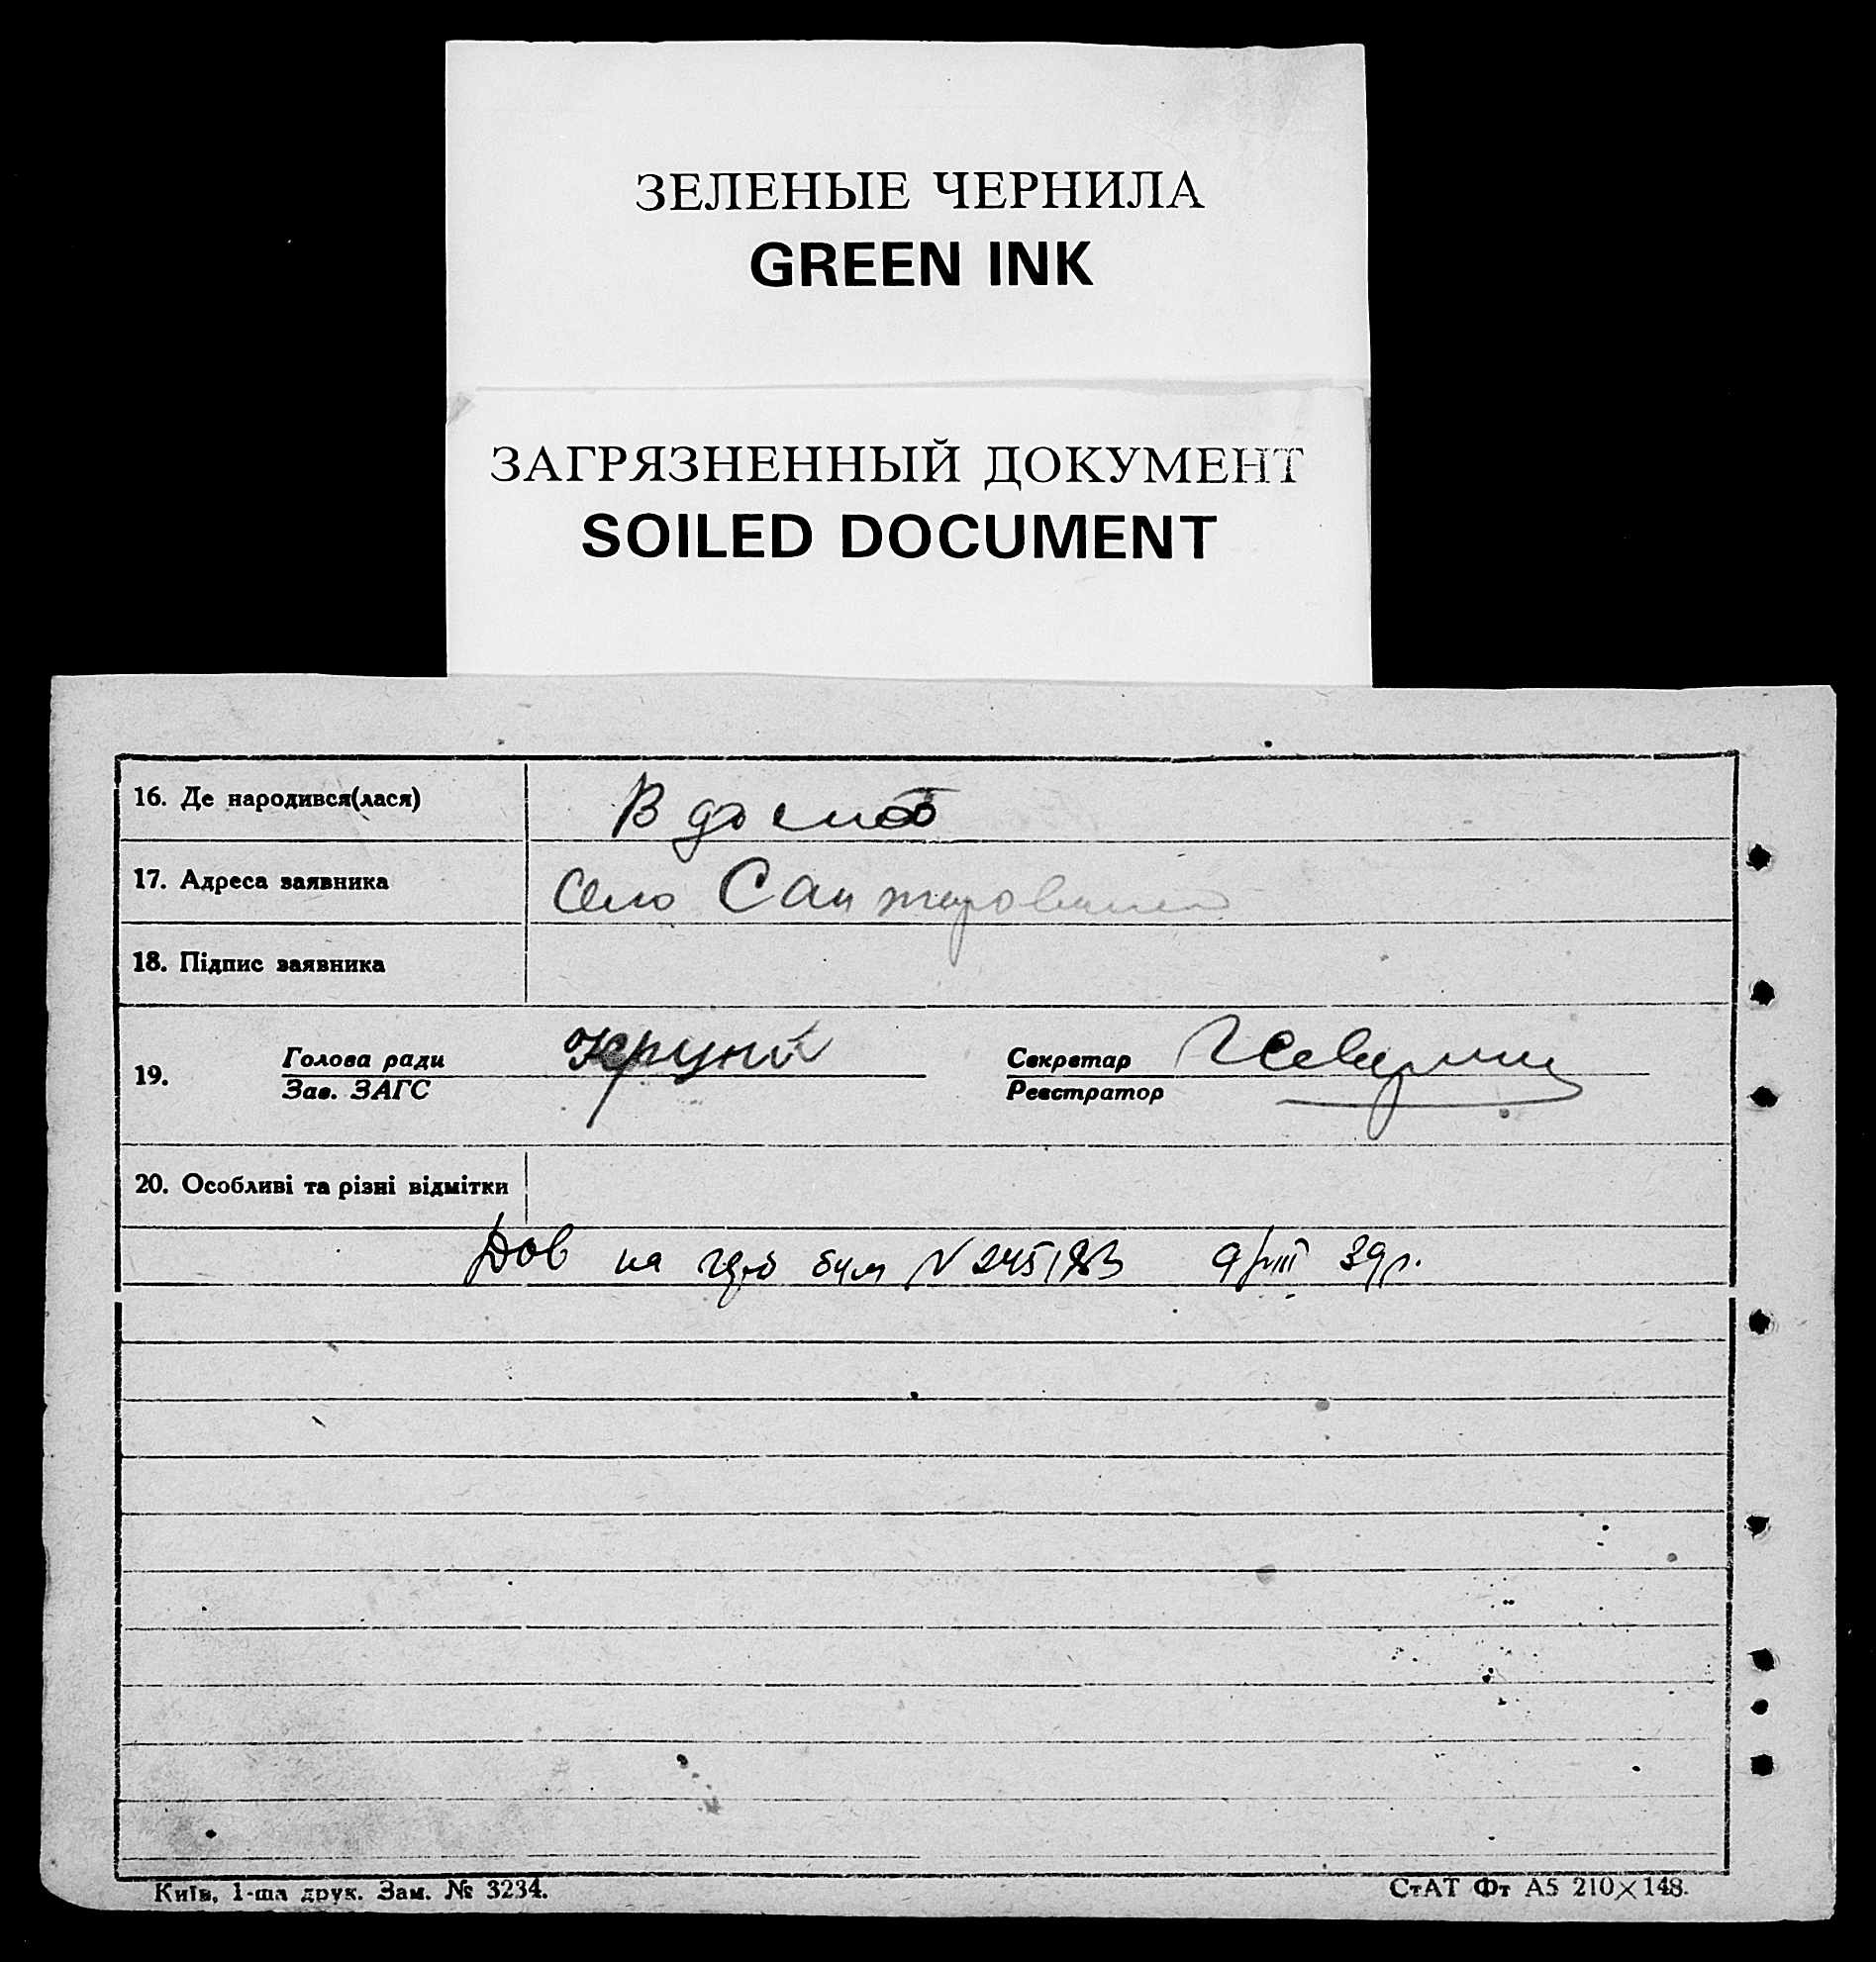 ЗЕЛЕНЫЕ ЧЕРНИЛА
GREEN INK
ЗАГРЯЗНЕННЫЙ ДОКУМЕНТ
SOILED DOCUMENT
16. Де народився(лася) В
17. Адреса заявника Село
18. Підпис заявника
19. Голова ради Секретар
Зав. ЗАГС Реєстратор
20. Особливі та різні відмітки
Дов на 9/VIII 39 р.
Київ, 1-ша друк. Зам. № 3234. СтАТ Фт А5 210×148.